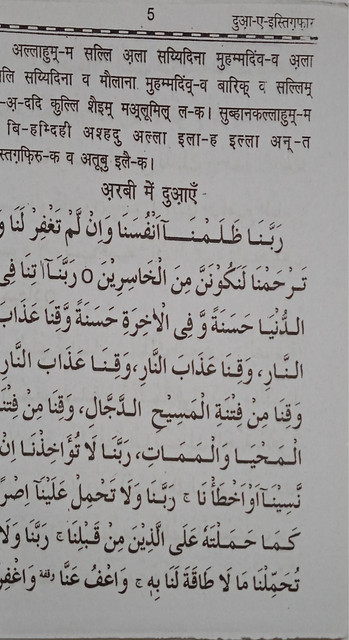 5 दुआ़-ए-इस्तिग़फ़ार
अल्लाहुम्-म सल्लि अ़ला सय्यिदिना मुहम्मदिंव-व अ़ला
लि सय्यिदिना व मौलाना मुहम्मदिंव्-व बारिक् व सल्लिम्
-अ़-ददि कुल्लि शैइम् मअ़्लूमिल् ल-क। सुब्हानकल्लाहुम्-म
बि-हम्दिही अश्हदु अल्ला इला-ह इल्ला अन्-त
स्तग़्फ़िरु-क व अतूबु इलै-क।
अ़रबी में दुआ़एँ
رَبَّنَا ظَلَمْنَآ اَنْفُسَنَا وَاِنْ لَّمْ تَغْفِرْ لَنَا وَ
تَرْحَمْنَا لَنَكُوْنَنَّ مِنَ الْخَاسِرِيْنَ ○ رَبَّنَآ اٰتِنَا فِى
الدُّنْيَا حَسَنَةً وَّ فِى الْاٰخِرَةِ حَسَنَةً وَّقِنَا عَذَابَ
النَّارِ، وَقِنَا عَذَابَ النَّارِ، وَقِنَا عَذَابَ النَّارِ
وَقِنَا مِنْ فِتْنَةِ الْمَسِيْحِ الدَّجَّالِ، وَقِنَا مِنْ فِتْنَ
الْمَحْيَا وَالْمَمَاتِ، رَبَّنَا لَا تُؤَاخِذْنَا اِنْ
نَّسِيْنَآ اَوْ اَخْطَأْنَا ج رَبَّنَا وَلَا تَحْمِلْ عَلَيْنَآ اِصْرً
كَمَا حَمَلْتَهٗ عَلَى الَّذِيْنَ مِنْ قَبْلِنَا ج رَبَّنَا وَلَا
تُحَمِّلْنَا مَا لَا طَاقَةَ لَنَا بِهٖ ج وَاعْفُ عَنَّا وقفة وَاغْفِرْ